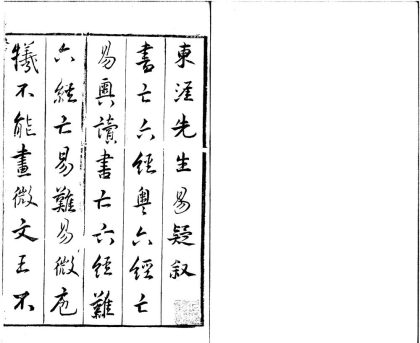 東涯先生易疑叙
書亡六經奥六經亡
易奥讀書亡六經難
六經亡易難易微庖
犧不能畫微文王不